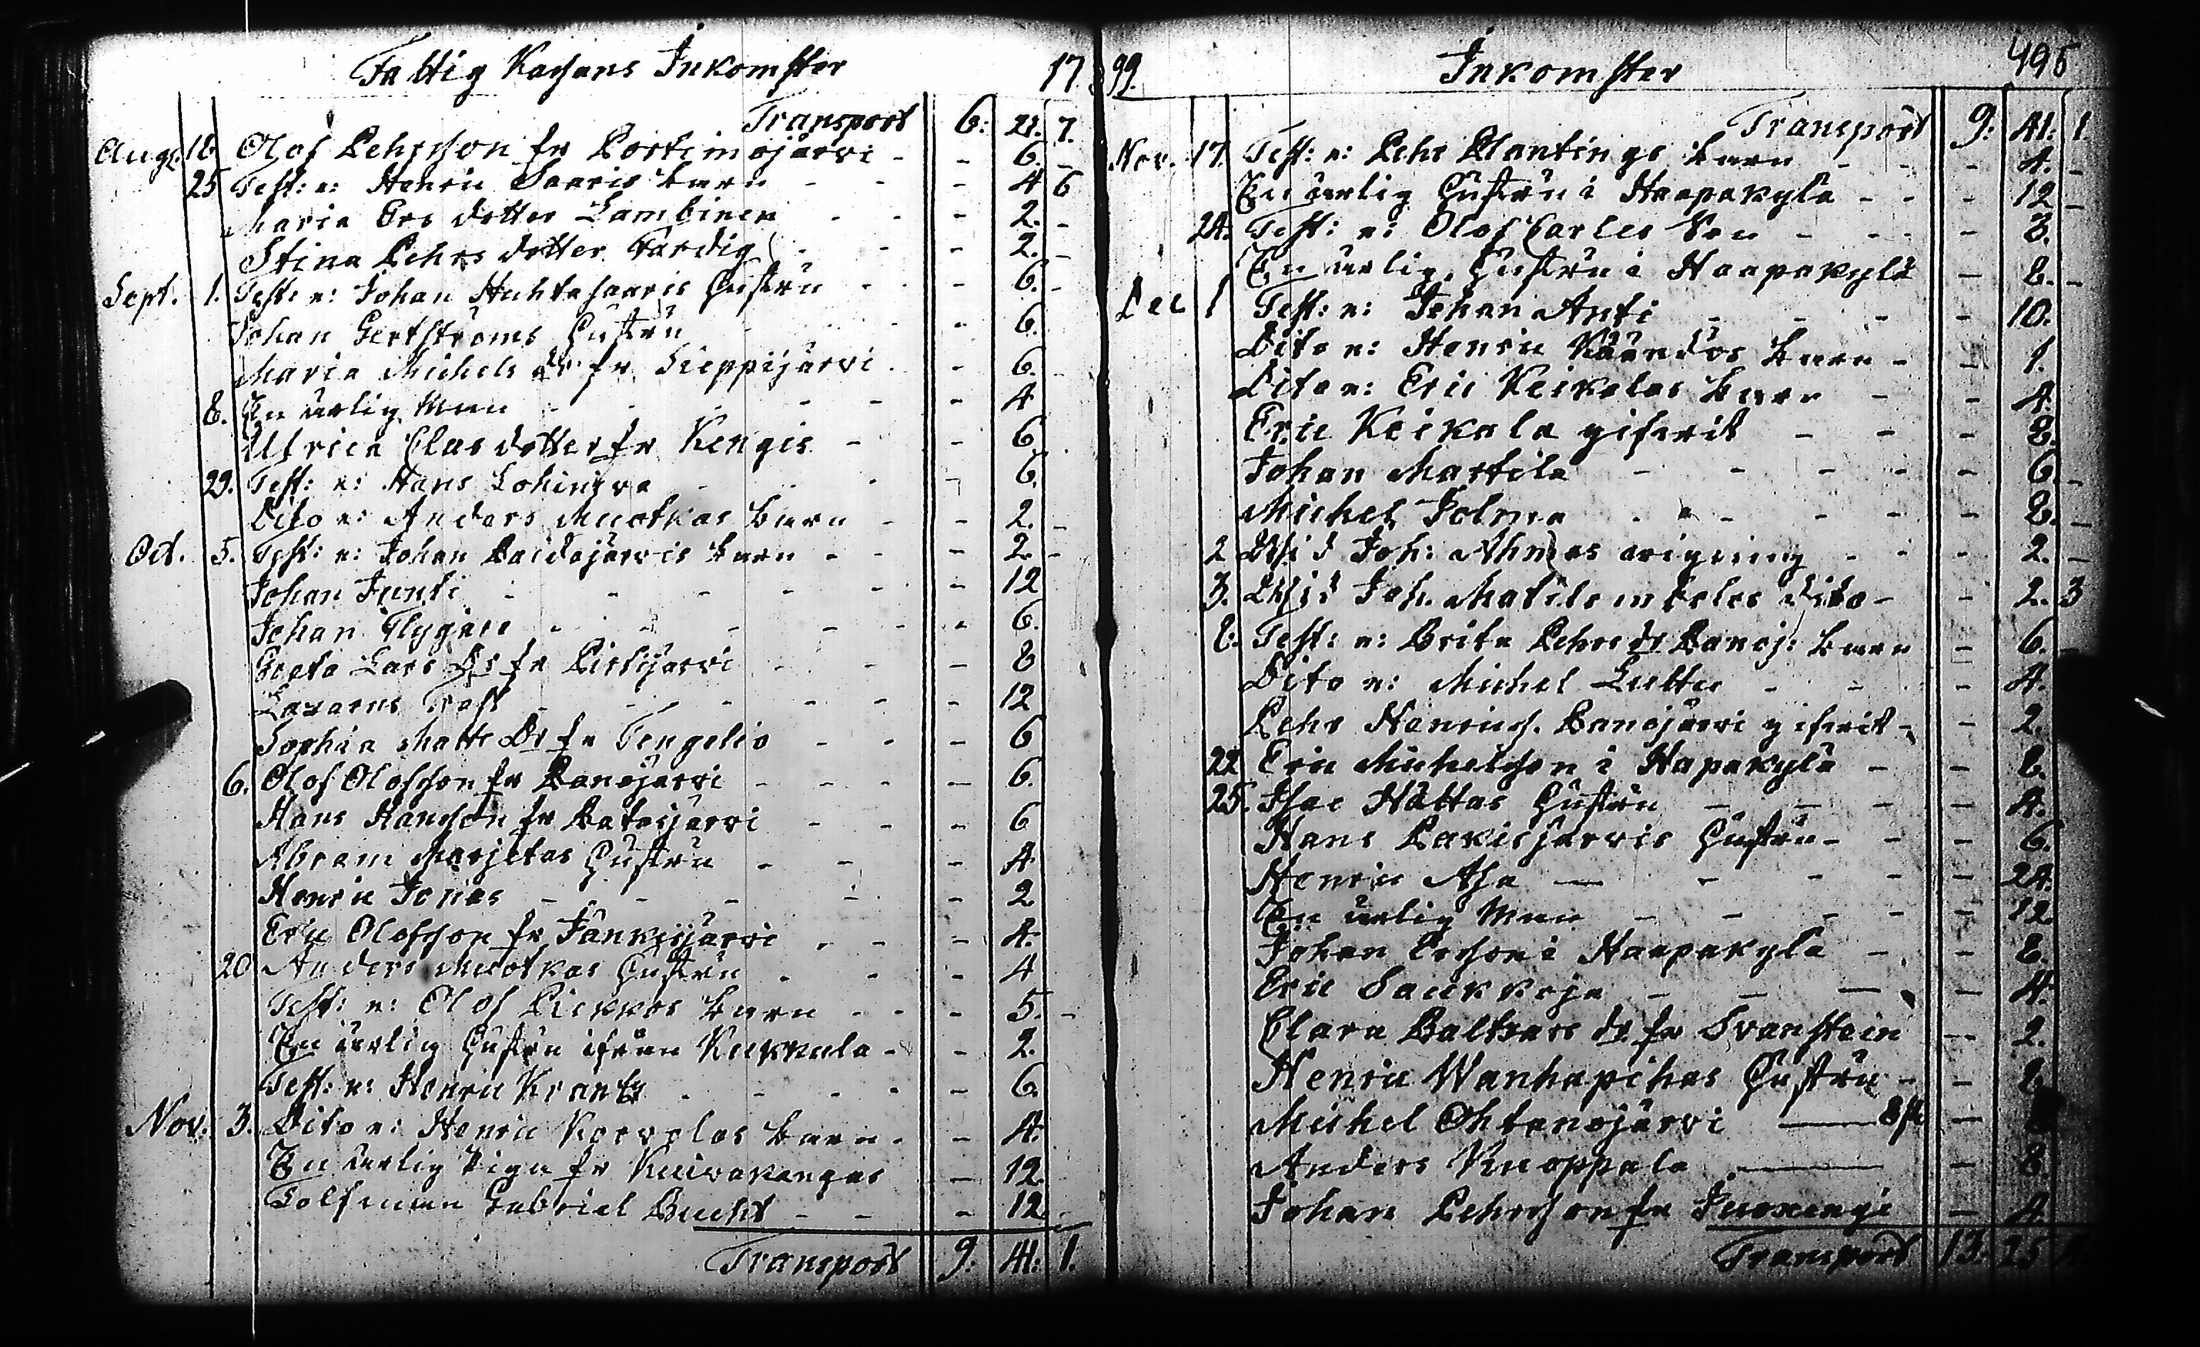 Fattig Kassans Inkomster 17
Transport 6: 21. 7.
Aug. 18 Olof Pehrsson fr Portimojärvi - - 6. -
25 Test: e: Henric Saaris barn - - - 4 6
Maria Ers dotter Lambinen - - - 2. -
Stina Pehrs dotter Vardig - - - 2. -
Sept. 1. Test: e: Johan Huhtasaaris Hustru - - - 6. -
Johan Gertströms Hustru - - - 6.
Maria Michels dr fr Sieppijärvi - - 6.
8. En ärlig Man - - - - 4
Ulrica Clas dotter fr Kengis - - 6
29. Test: e: Hans Lohiniva - - - 6.
Dito e: Anders Muotkas barn - - 2. -
Oct. 5. Test: e: Johan Paidajärvis barn - - - 2 -
Johan Junti - - - - - 12
Johan Flygare - - - - - 6.
Greta Lars Dr fr Pirtijärvi - - - 8
Lazarus - - - - - 12
Sophia Matts Dr fr Tengeliö - - - 6
6. Olof Olofsson fr Banojärvi - - - - 6.
Hans Hansson fr Ratasjärvi - - - 6
Abram Marjetas Hustru - - - 4
Henric Jonas - - - - - 2
Eric Olofsson fr Jänkisjärvi - - - 4.
20 Anders Muotkas Hustru - - - 4
Test: e: Olof Piekkos barn - - - 5. -
En ärlig Hustru ifrån Kukkula - - 2.
Test: e: Henric Krantz - - - - 6.
Nov: 3. Dito e: Henric Korvolas barn - - 4.
En ärlig Piga fr Kuivakangas - 12.
Tolfman Gabriel Bucht - - - 12 -
Transport 9: 41: 1.
99. Inkomster 495
Transport 9: 41: 1
Nov. 17. Test: e: Pehr Plantings barn - - 4. -
En ärlig Hustru i Haapakylä - - - 12 -
24. Test: e: Olof Carles Son - - - 3.
En ärlig Hustru i Haapakylä - 8. -
Dec 1 Test: e: Johan Anti - - - - 10.
Dito e: Henric Väändös barn - - 1.
Dito e: Eric Keikalas barn - - 4.
Eric Keikala gifvit - - - 8.
Johan Martila - - - - - 6. -
Michel Jolma - - - - 8. -
2 Wid Joh: Ahmas vigning - - - 2. -
3. Wid Joh. Matila dito - - 2. 3
8: Test: e: Brita Pehrs dr Banoj: barn - 6.
Dito e: Michel - - - 4.
Pehr Henrics. Banojärvi gifvit - - 2.
22 Eric Michelsson i Hapakylä - - 8.
25. Isac Hättas Hustru - - - - 4.
Hans Pakisjärvis Hustru - - - 6.
Henric Asa - - - - - 24.
En ärlig Man - - - - - 12.
Johan Ersson i Haapakylä - - 8.
Eric Saukkoja - - - - 4.
Clara Baltzars dr fr Svanstein - 2.
Henric Wanhapihas Hustru - - 8
Michel Ohtanojärvi - 8 sk - 8
Anders Knoppala - - 8.
Johan Pehrsson fr Juoxengi - 4
Transport 13. 25